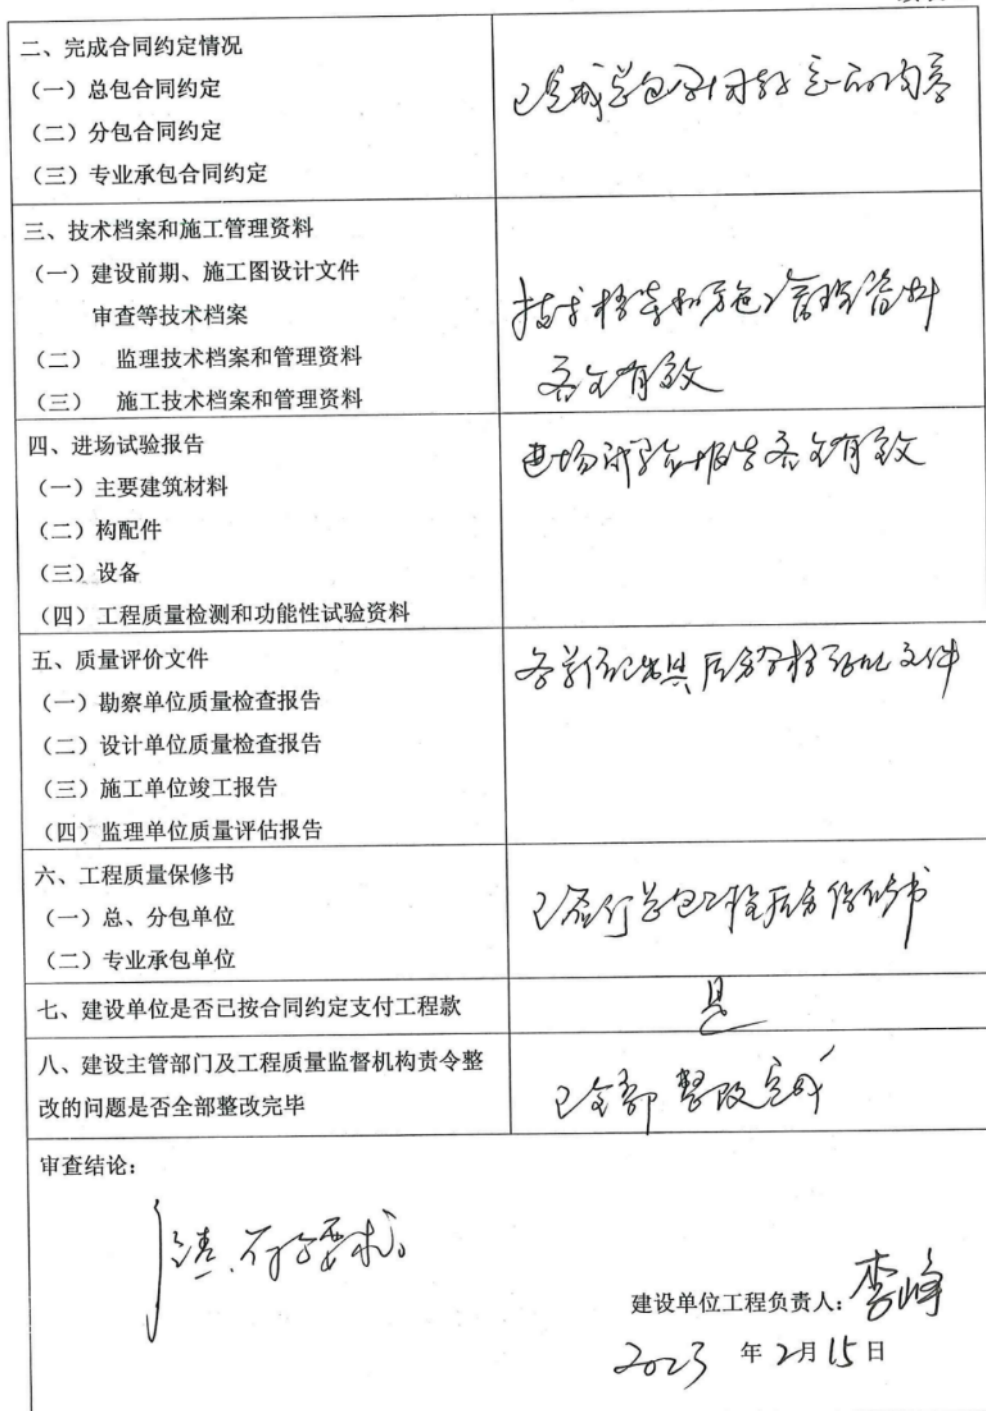 二、完成合同约定情况
（一）总包合同约定
（二）分包合同约定
（三）专业承包合同约定
已完成总包合同约定的内容
三、技术档案和施工管理资料
（一）建设前期、施工图设计文件
审查等技术档案
（二） 监理技术档案和管理资料
（三） 施工技术档案和管理资料
技术档案和施工管理资料
齐全有效
四、进场试验报告
（一）主要建筑材料
（二）构配件
（三）设备
（四）工程质量检测和功能性试验资料
进场试验报告齐全有效
五、质量评价文件
（一）勘察单位质量检查报告
（二）设计单位质量检查报告
（三）施工单位竣工报告
（四）监理单位质量评估报告
各单位已出具质量合格 文件
六、工程质量保修书
（一）总、分包单位
（二）专业承包单位
已签订总包工程质量保修书
七、建设单位是否已按合同约定支付工程款
是
八、建设主管部门及工程质量监督机构责令整
改的问题是否全部整改完毕
已全部整改完成
审查结论：
符合要求。
建设单位工程负责人：李峰
2023 年 2月15日